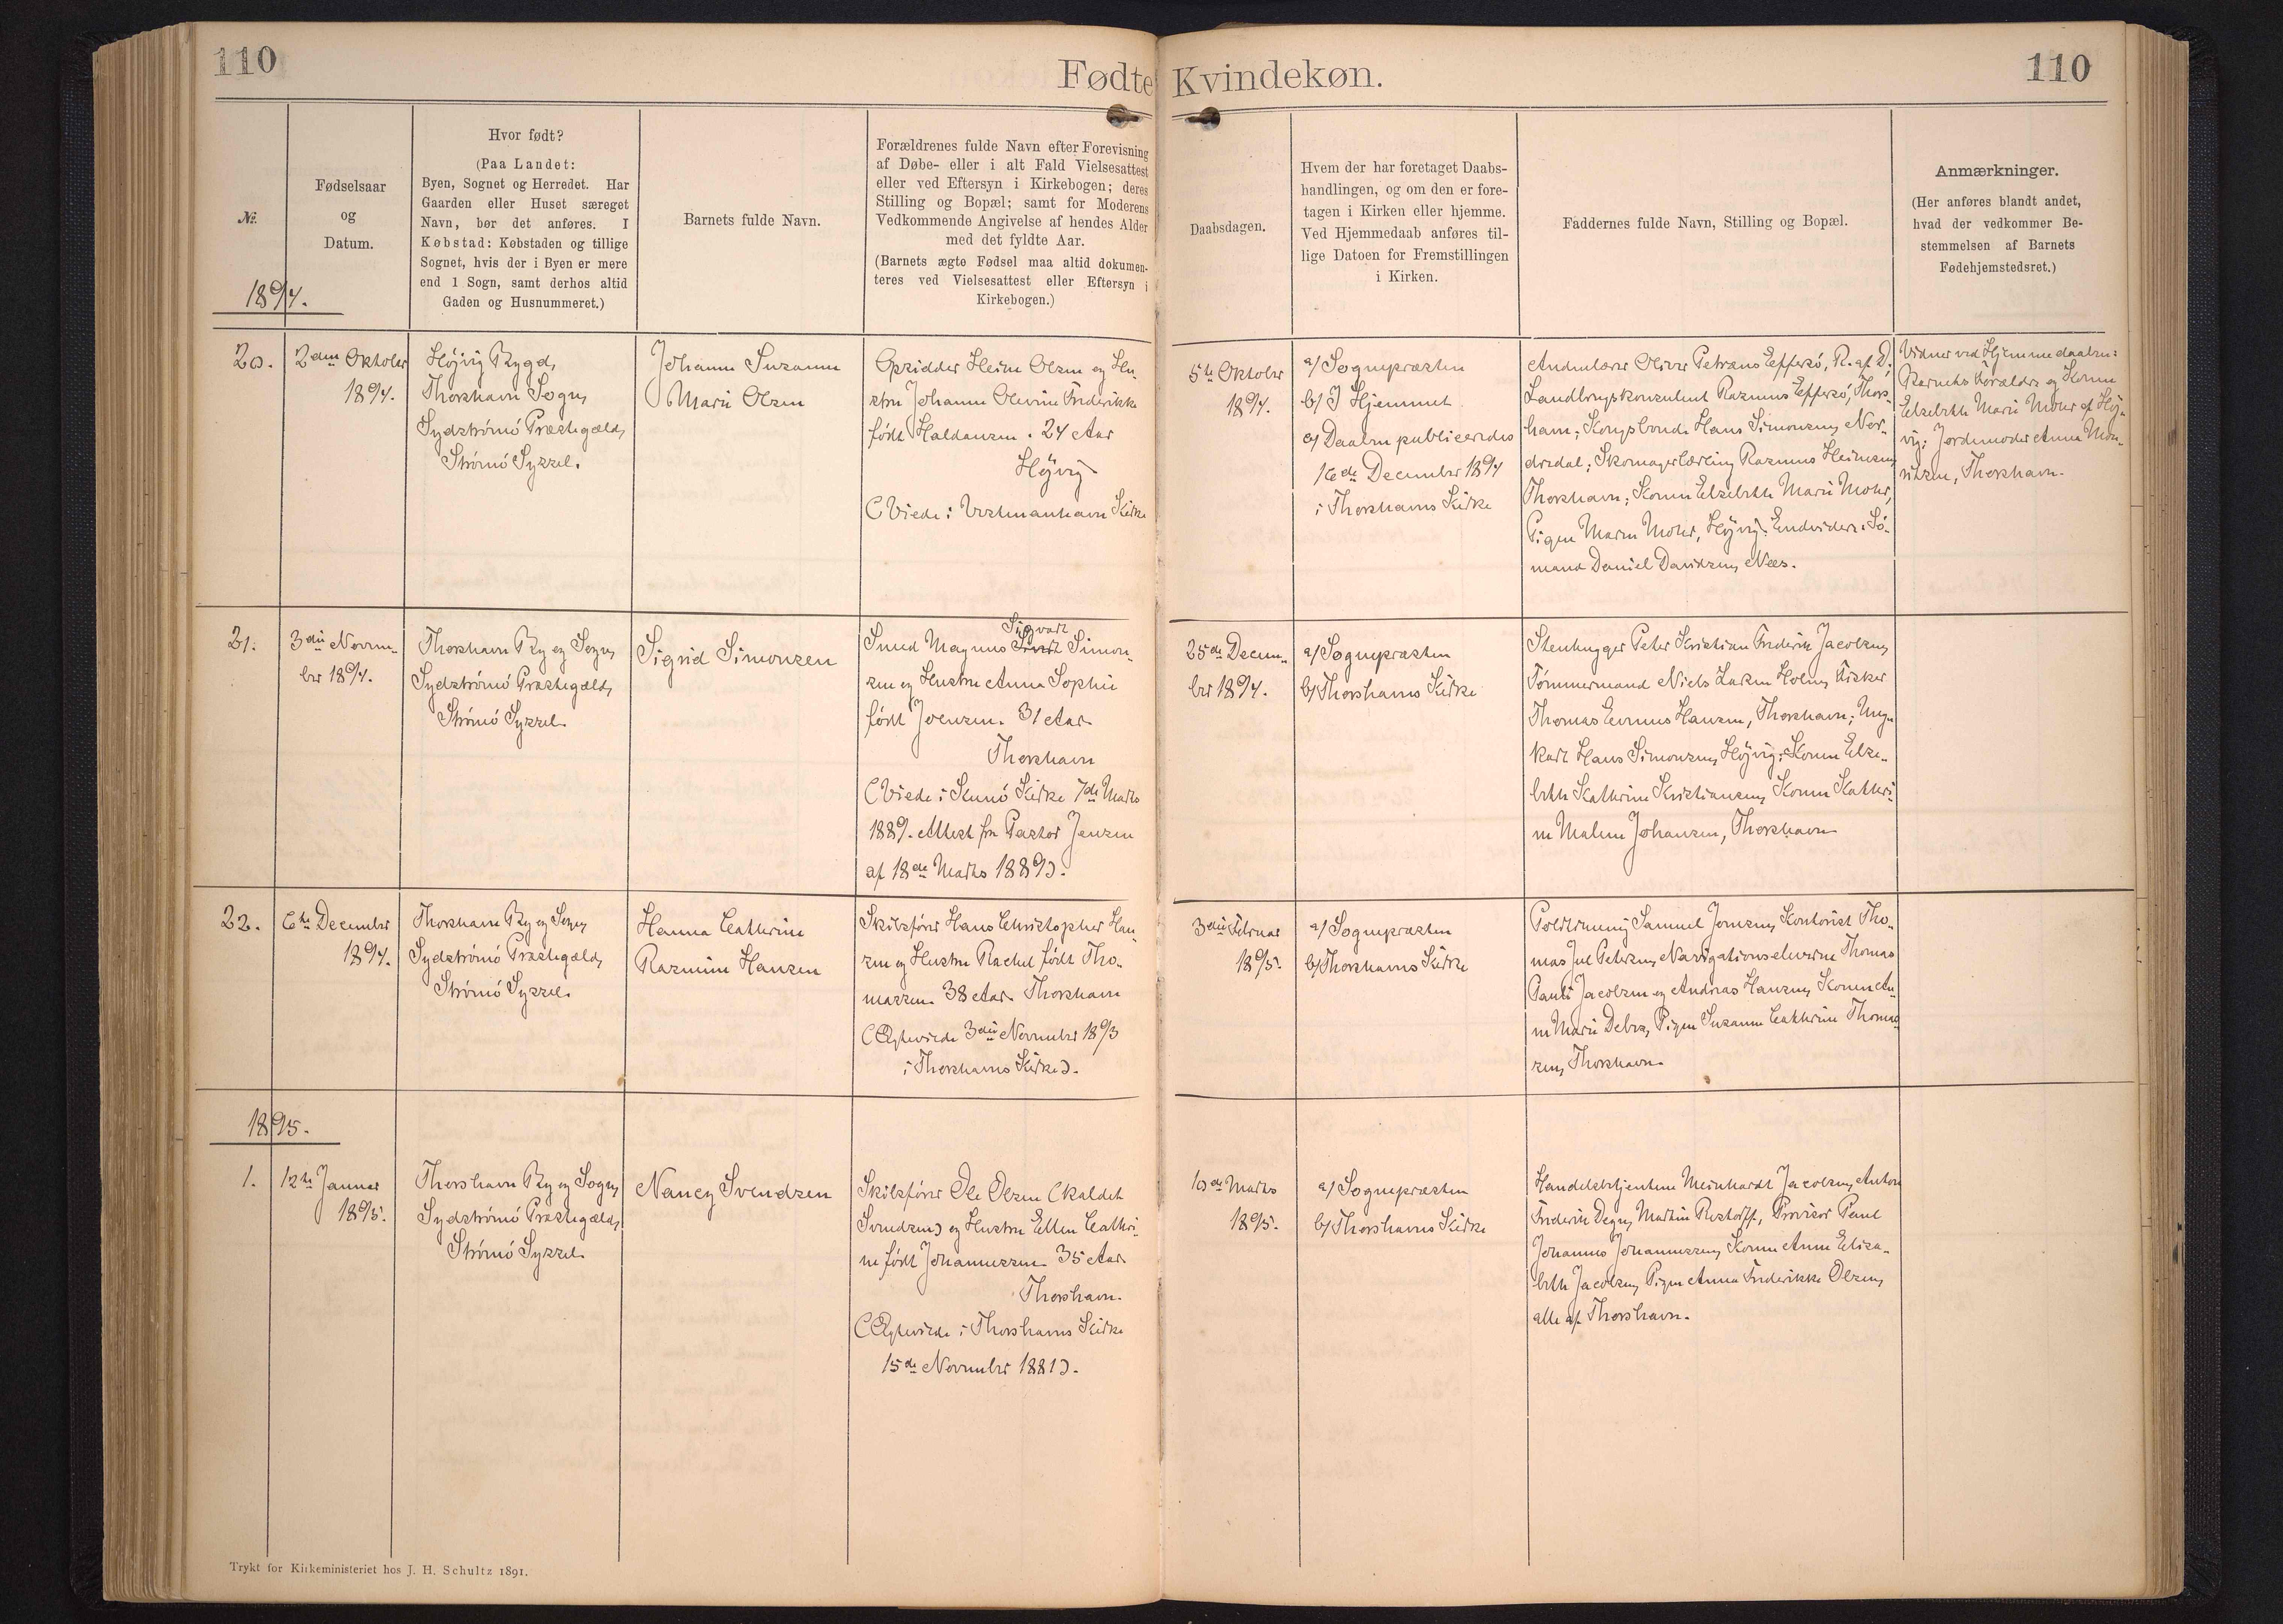 110
Fødte Kvindekøn.
110
Nr.
Fødselsaar
og
Datum.
Hvor født?
(Paa Landet:
Byen, Sognet og Herredet. Har
Gaarden eller Huset særeget
Navn, bør det anføres. I
Købstad: Købstaden og tillige
Sognet, hvis der i Byen er mere
end 1 Sogn, samt derhos altid
Gaden og Husnummeret.)
Barnets fulde Navn.
Forældrenes fulde Navn efter Forevisning
af Døbe- eller i alt Fald Vielsesattest
eller ved Eftersyn i Kirkebogen; deres
Stilling og Bopæl; samt for Moderens
Vedkommende Angivelse af hendes Alder
med det fyldte Aar.
(Barnets ægte Fødsel maa altid dokumen-
teres ved Vielsesattest eller Eftersyn i
Kirkebogen.)
Daabsdagen.
Hvem der har foretaget Daabs-
handlingen, og om den er fore-
tagen i Kirken eller hjemme.
Ved Hjemmedaab anføres til-
lige Datoen for Fremstillingen
i Kirken.
Faddernes fulde Navn, Stilling og Bopæl.
Anmærkninger.
(Her anføres blandt andet,
hvad der vedkommer Be-
stemmelsen af Barnets
Fødehjemstedsret.)
1894.
20.
2den Oktober
1894.
Höjvig Bygd,
Thorshavn Sogn,
Sydströmö Præstegæld,
Strömö Syssel.
Johanne Susanne
Marie Olsen
Opsidder Heine Olsen og Hu-
stru Johanne Olevine Frederikke
födt Haldansen. 24 Aar
Höjvig
(Viede i Vestmanhavn Kirke
5te Oktober
1894.
a/ Sognepræsten
b/ I Hjemmet
c/ Daaben publiceredes
16de December 1894
i Thorshavns Kirke
Andenlærer Oliver Petræus Effersö, R. af D.
Landbrugskonsulent Rasmus Effersö, Thors-
havn; Kongsbonde Hans Simonsen, Nor-
dredal; Skomagerlærling Rasmus Heinesen,
Thorshavn; Konen Elsebeth Marie Mohr,
Pigen Maren Mohr, Höjvig. Endvidere: Sö-
mand Daniel Davidsen, Næs.
Vidner ved Hjemmedaaben:
Barnets Forældre og Konen
Elsebeth Marie Mohr af Höj-
vig; Jordemoder Anna Mou-
ritzen, Thorshavn.
21.
3die Novem-
ber 1894.
Thorshavn By og Sogn,
Sydströmö Præstegæld,
Strömö Syssel.
Sigrid Simonsen
Sigvart
Smed Magnus Simon-
sen og Hustru Anna Sophie
födt Joensen. 31 Aar
Thorshavn
(Viede i Kunö Kirke 7de Marts
1889. Attest fra Pastor Jensen
af 18de Marts 1889).
25de Decem-
ber 1894.
a/ Sognepræsten
b/ Thorshavns Kirke
Stenhugger Peter Kristian Frederik Jacobsen,
Tömmermand Niels Larsen Holm, Fisker
Thomas Evenus Hansen, Thorshavn; Ung-
karl Hans Simonsen, Höjvig; Konen Else-
beth Kathrine Kristiansen, Konen Kathri-
ne Malene Johansen, Thorshavn
22.
6te December
1894.
Thorshavn By og Sogn,
Sydströmö Præstegæld,
Strömö Syssel.
Hanna Cathrine
Rasmine Hansen
Skibsförer Hans Christopher Han-
sen og Hustru Rachel födt Tho-
massen. 38 Aar. Thorshavn
(Ægteviede 3die November 1893
i Thorshavns Kirke).
3die Februar
1895.
a/ Sognepræsten
b/ Thorshavns Kirke
Samuel Joensen, Kontorist Tho-
mas Juel Petersen, Navigationseleverne Thomas
Pauli Jacobsen og Andreas Hansen, Konen An-
ne Marie Debes, Pigen Susanne Cathrine Thomas-
sen, Thorshavn.
1895.
1.
12te Januar
1895.
Thorshavn By og Sogn,
Sydströmö Præstegæld,
Strömö Syssel.
Nancy Svendsen
Skibsförer Ole Olsen (kaldet
Svendsen) og Hustru Ellen Cathri-
ne födt Johannessen. 35 Aar.
Thorshavn.
(Ægteviede i Thorshavns Kirke
15de November 1881).
10de Marts
1895.
a/ Sognepræsten
b/ Thorshavns Kirke
Handelsbetjentene Meinhardt Jacobsen, Anton
Frederik Degn, Martin Restorff, Provisor Poul
Johannes Johannessen, Konen Anne Elisa-
beth Jacobsen, Pigen Anna Frederikke Olsen,
alle af Thorshavn.
Trykt for Kirkeministeriet hos J. H. Schultz 1891.